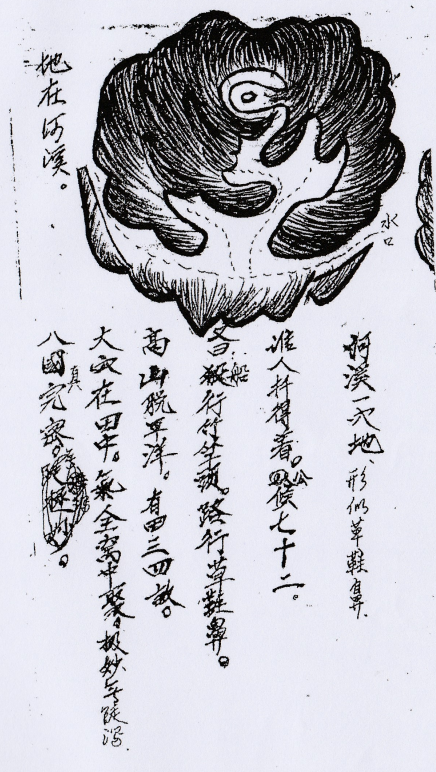 水口
地在河溪。
訶溪一穴地、形似草鞋鼻
誰人扦得着。公侯七十二。
又曰船行竹篙頭。路行草鞋鼻。
高山脱平洋。有田三四畝。
大穴在田中。氣全窩中聚。极妙
八國完密。真妙。